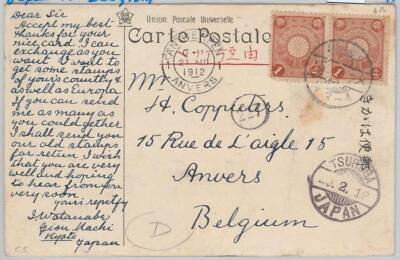 Dear Sir
Accept my best
thanks for your
nice card. I can
exchange as you
want. I want to
get some stamps
of yours country &
as well as Europa
If you can send
me as many as
you could gether
I shall send you
our old stamps
for return. I wish
that you are very
well and hoping
to hear from you
very soon.
yours
I. Watanabe
Gion Machi
Kyoto
Japan
Union Postale Universelle
Carte Postale
ANVERS
1912
由
Mr
H. Coppieters
15 Rue de L'aigle 15
Anvers
Belgium
227
きがは便郵
TSURUGA
2.12
JAPAN
D